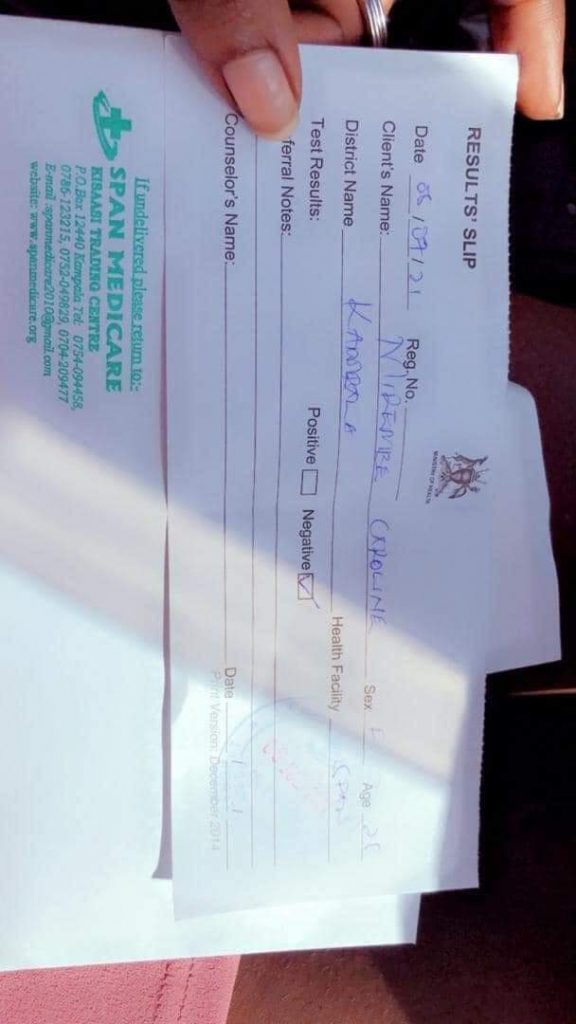 RESULTS' SLIP
MINISTRY OF HEALTH
Date 05/09/21 Reg. No.
Client's Name: NIREMBE CAROLINE Sex F Age 28
District Name KAMPALA Health Facility SPAN
Test Results: Positive Negative ✓
ferral Notes:
Counselor's Name: Date
Print Version: December 2014
If undelivered please return to:-
SPAN MEDICARE
KISAASI TRADING CENTRE
P.O.Box 12440 Kampala Tel: 0754-094458,
0786-123215, 0752-049829, 0704-209477
E-mail :spanmedicare2010@gmail.com
website: www.spanmedicare.org